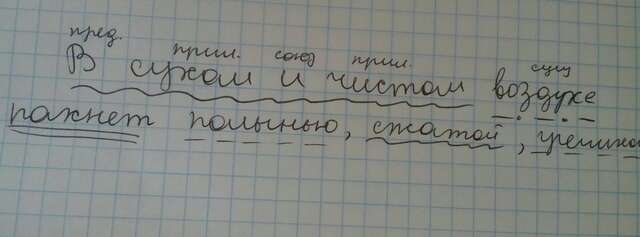 пред. прил. союз прил. сущ
В сухом и чистом воздухе
пахнет полынью, сжатой, гречихо